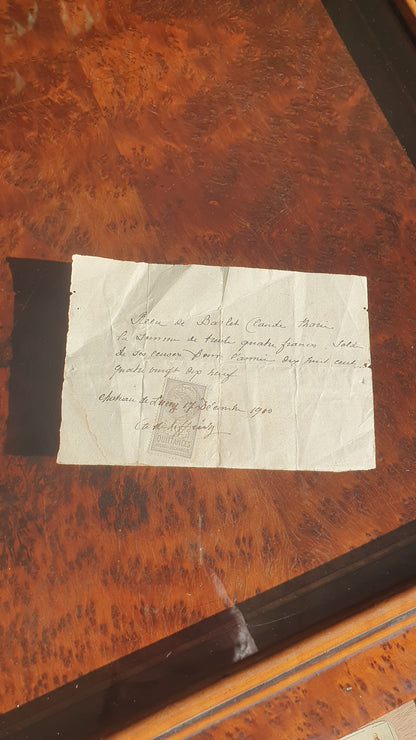 Recu de Barlet Claude Marie
la Somme de trente quatre francs Solde
de Ses cences pour l'année dix huit cent
quatre vingt dix neuf
Chateau de 17 Décembre 1900
QUITTANCES